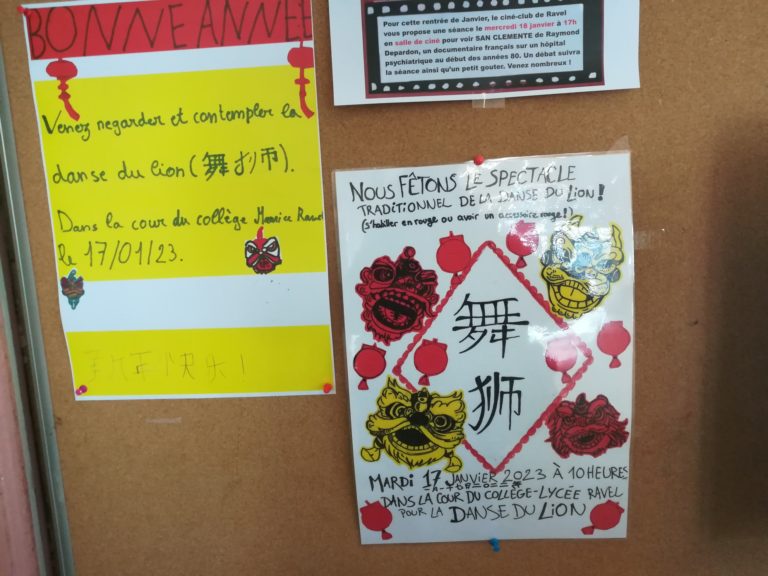 BONNE ANNÉE
Venez regarder et contempler la
danse du lion (舞狮).
Dans la cour du collège Maurice Ravel
le 17/01/23.
新年快乐!
Pour cette rentrée de Janvier, le ciné-club de Ravel
vous propose une séance le mercredi 18 janvier à 17h
en salle de ciné pour voir SAN CLEMENTE de Raymond
Depardon, un documentaire français sur un hôpital
psychiatrique au début des années 80. Un débat suivra
la séance ainsi qu'un petit gouter. Venez nombreux !
NOUS FÊTONS LE SPECTACLE
TRADITIONNEL DE LA DANSE DU LION !
(S'habiller en rouge ou avoir un accessoire rouge !)
舞
狮
MARDI 17 JANVIER 2023 À 10 HEURES
DANS LA COUR DU COLLÈGE-LYCÉE RAVEL
POUR LA DANSE DU LION